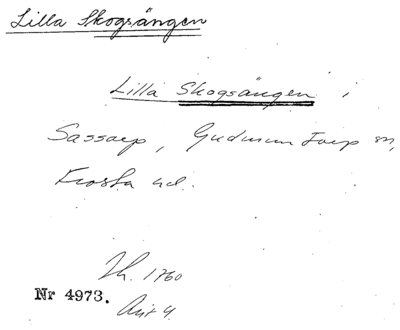 Lilla Skogsängen
Lilla Skogsängen i
Sassarp, Gudmuntorp sn,
Frosta hd.
Lh. 1760
Nr 4973. Akt 4.